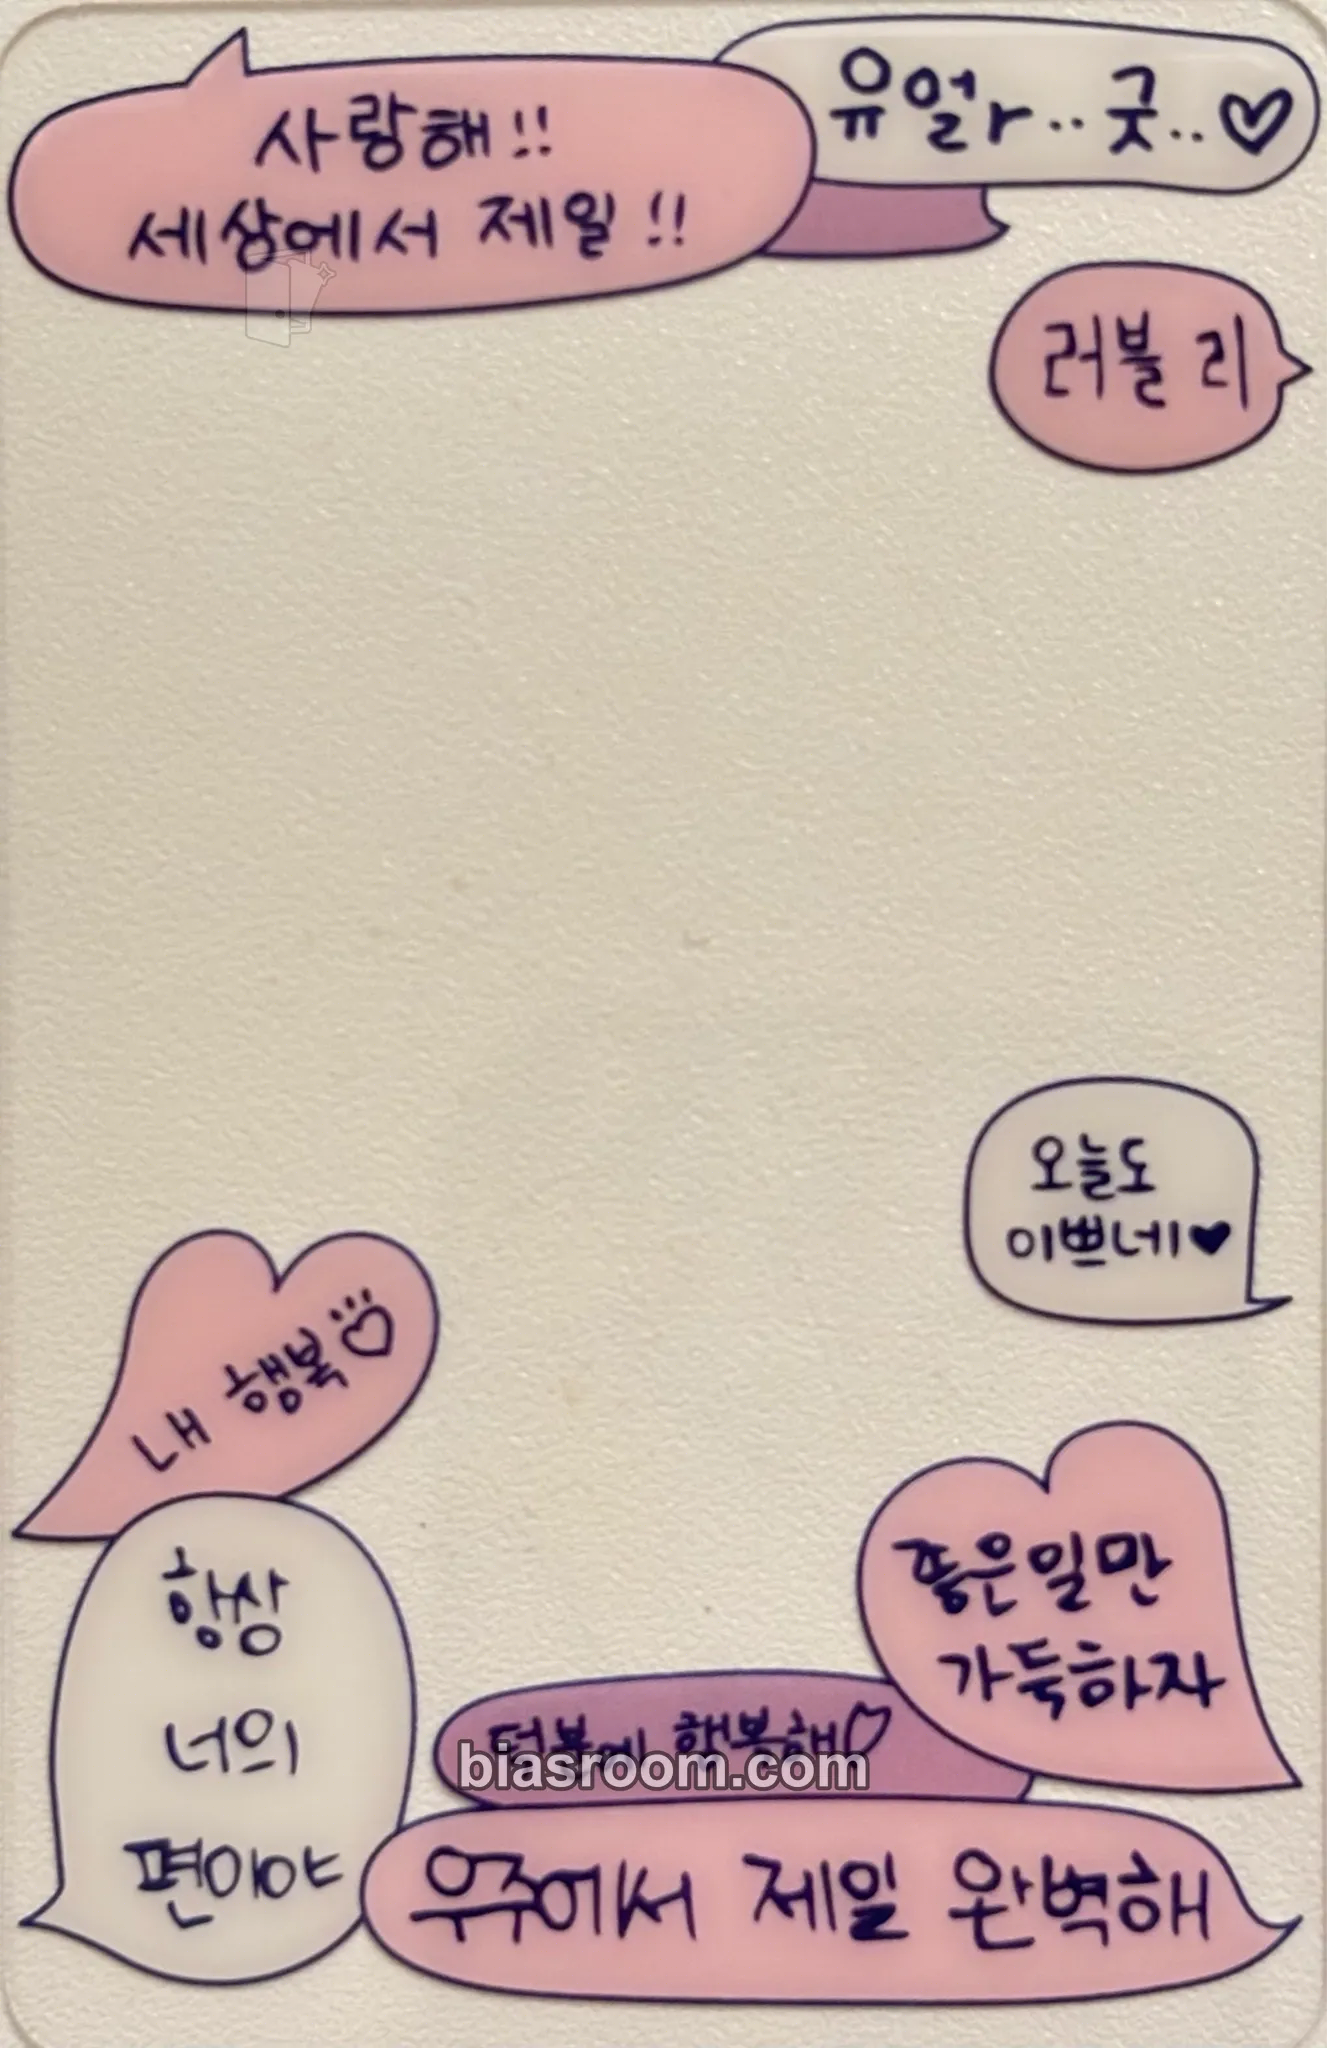 사랑해!!
세상에서 제일!!
유얼r..굿..♡
러블리
오늘도
이쁘네♥
내 행복♡
항상
너의
편이야
좋은일만
가득하자
덕분에 행복해♡
biasroom.com
우주에서 제일 완벽해